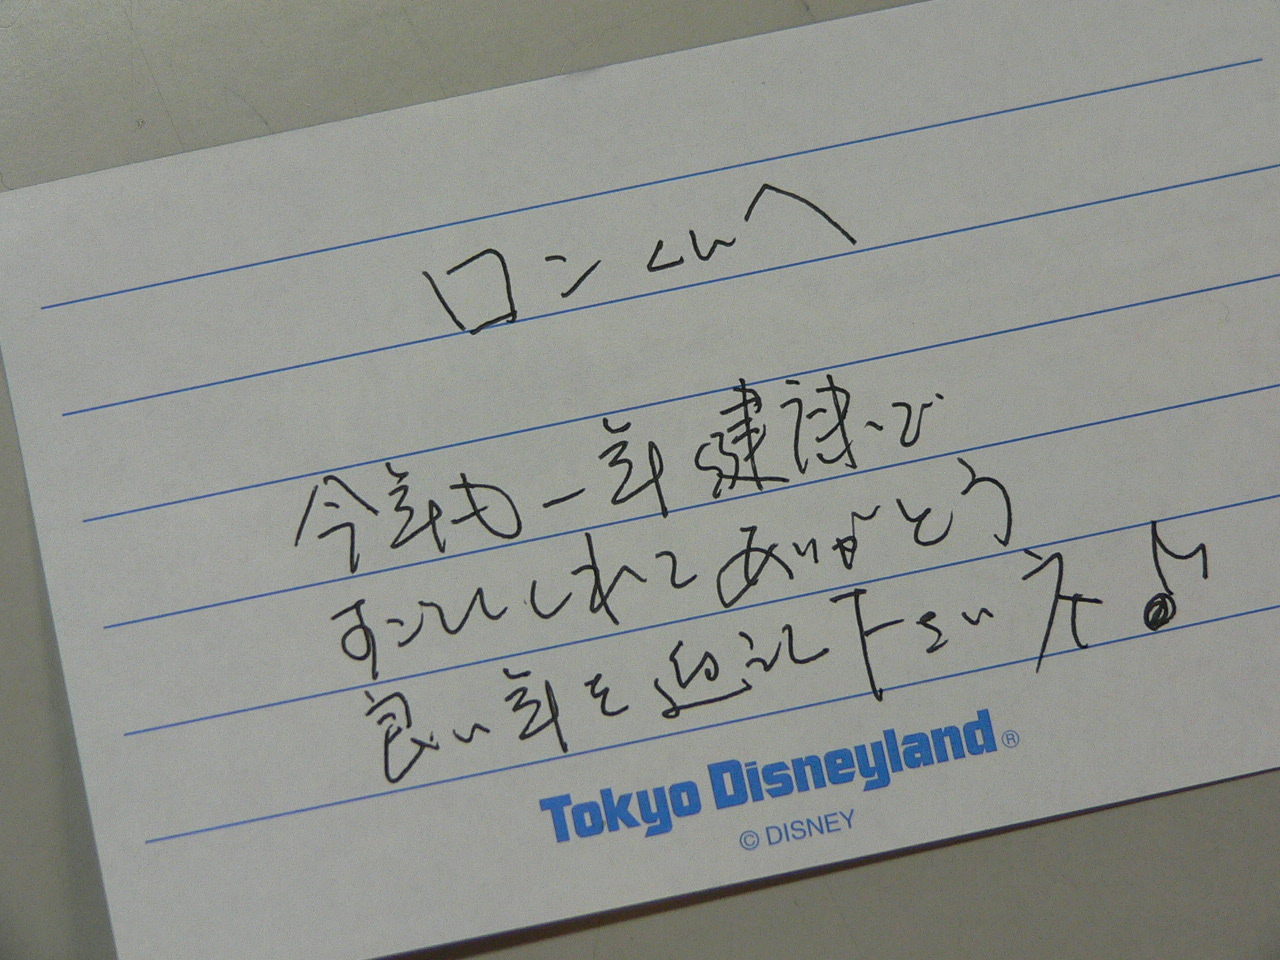 ロンくんへ
今年も一年健康で
すごしてくれてありがとう
良い年を迎えて下さいネ♪
Tokyo Disneyland®
© DISNEY